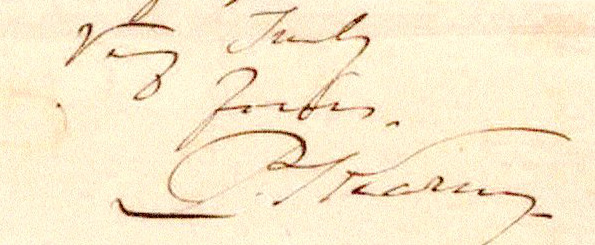 Very Truly
Yours.
P. Kearny